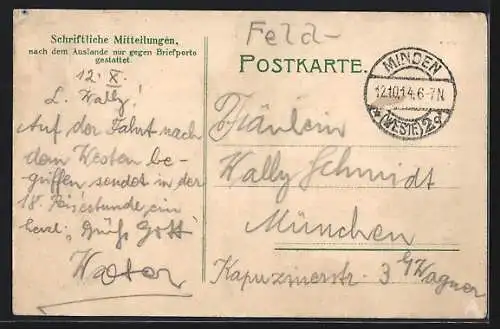 Schriftliche Mitteilungen,
nach dem Auslande nur gegen Briefporto
gestattet.
12. X.
L. Wally!
Auf der Fahrt nach
dem Westen be-
griffen sendet in der
18. Reisestunde ein
herzl. Grüß Gott
Walter
Feld-
POSTKARTE.
MINDEN
12.10.14.6-7N.
* (WESTF.) 2 d
Fräulein
Wally Schmidt
München
Kapuzinerstr. 3 b/Wagner